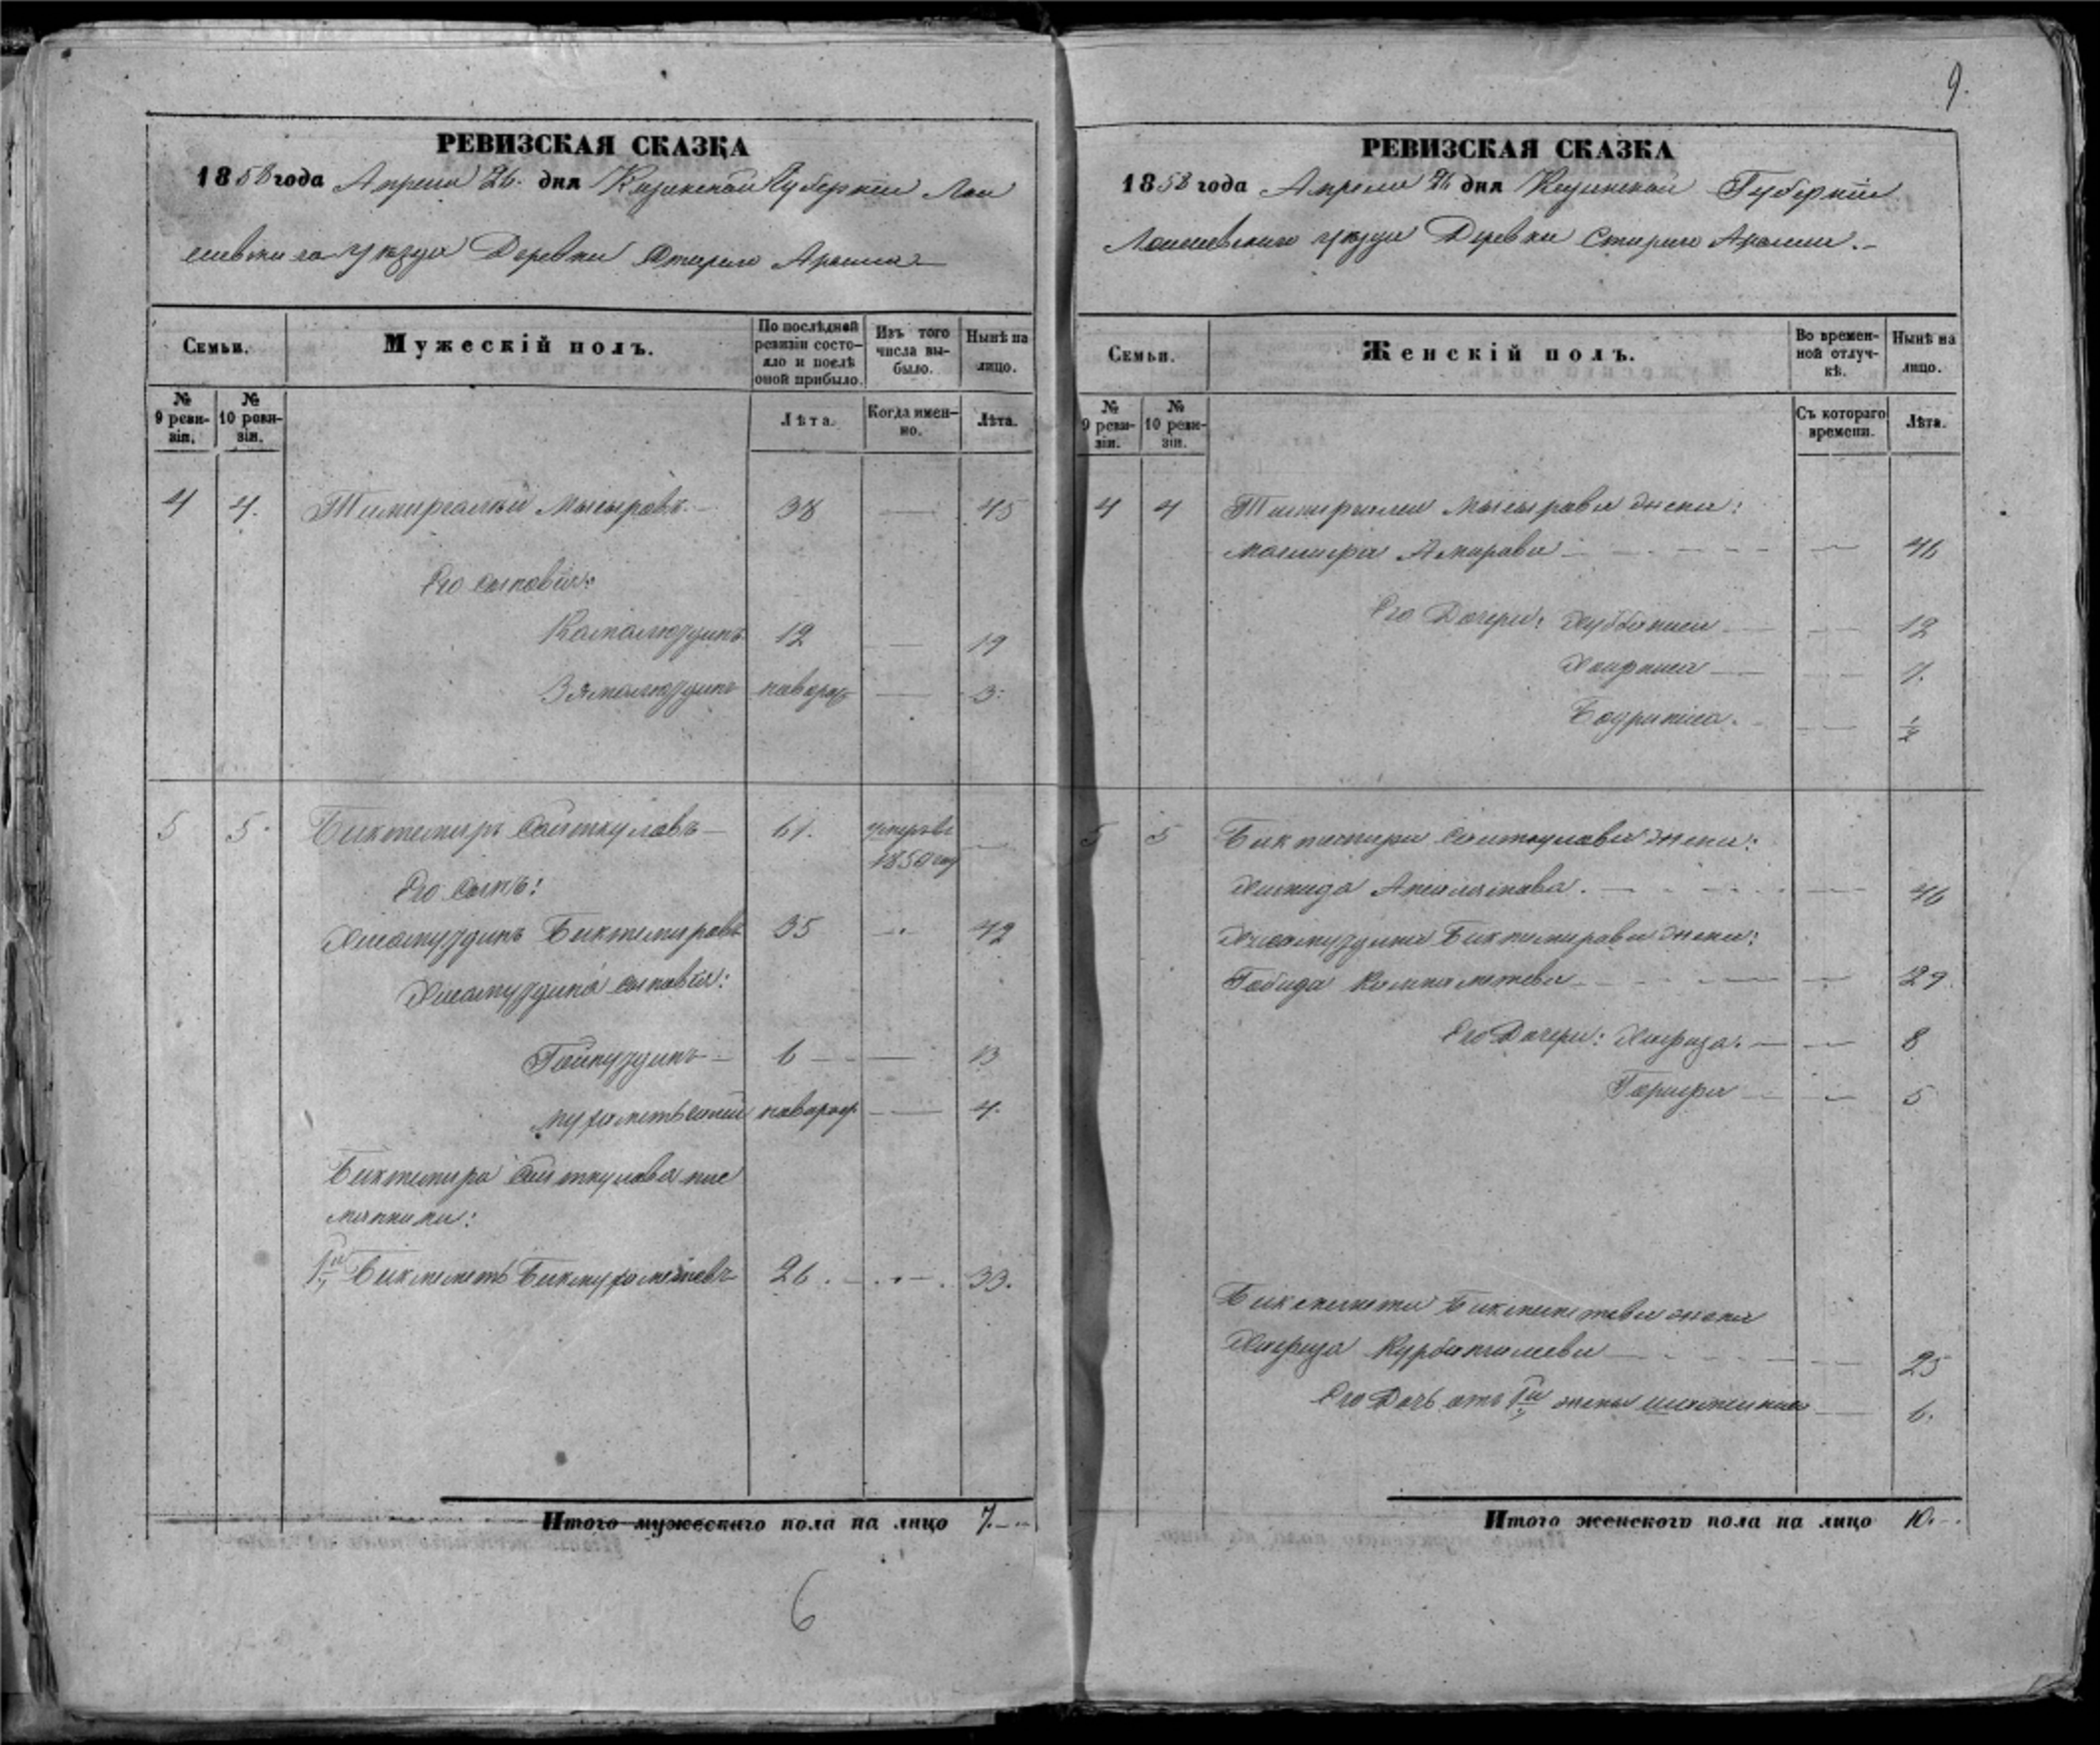 9.
РЕВИЗСКАЯ СКАЗКА
1858 года Апреля 26. дня Казанской Губернии Лаи
шевскаго Уезда Деревни Стараго Аракчи
Семьи. Мужескій полъ. По послѣдней ревизіи состояло и послѣ оной прибыло. Изъ того числа выбыло. Нынѣ на лицо.
№ 9 ревизіи. № 10 ревизіи. Лѣта. Когда именно. Лѣта.
4 4. Тимиргалей Мысыровъ 38 — 45
Его сыновья:
Камалюддинъ 12 — 19
Зямалюддинъ новорож — 3.
5 5. Биктемиръ Саиткуловъ 61. умеръ въ 1850 год —
Его сынъ:
Хисамуддинъ Биктемировъ 35 — 42
Хисамуддина сыновья:
Гайнуддинъ 6 — 13
Мухаметьсафей новорож — 4.
Биктемира Саиткулова пле
мянники:
1й Бикмеметь Бикмухаметевъ 26. — 33.
Итого мужескаго пола на лицо 7.
6
РЕВИЗСКАЯ СКАЗКА
1858 года Апреля 26 дня Казанской Губернии
Лаишевскаго уезда Деревни Стараго Аракчи.
Семьи. Женскій полъ. Во временной отлучкѣ. Нынѣ на лицо.
№ 9 ревизіи. № 10 ревизіи. Съ котораго времени. Лѣта.
4 4 Тимиргалея Мысырова жена:
Амирова — 46
Его Дочери: Хуббониса — 12
— 7.
Бадриниса. — 1/2
5 5 Биктемира Саиткулова жена:
Хамида — 46
Хисамуддина Биктемирова жена:
Габида — 29.
Его Дочери: Хафиза. — 8
Гарифа — 5
Бикмемета Бикмеметева жена
Хафиза Курбангалеева — 25
Его Дочь отъ 1й жены — 6.
Итого женскаго пола на лицо 10.